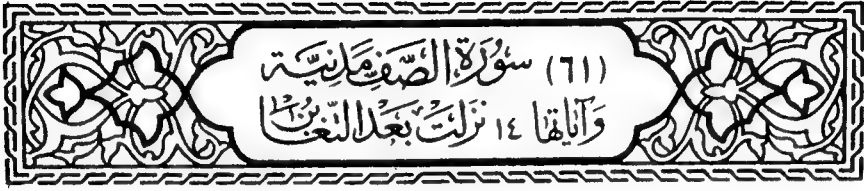 (٦١) سُورَةِ الصَّفِّ مَدَنِيَّة
وَآيَاتهَا ١٤ نَزَلَتْ بَعْدَ التَّغَابُنْ